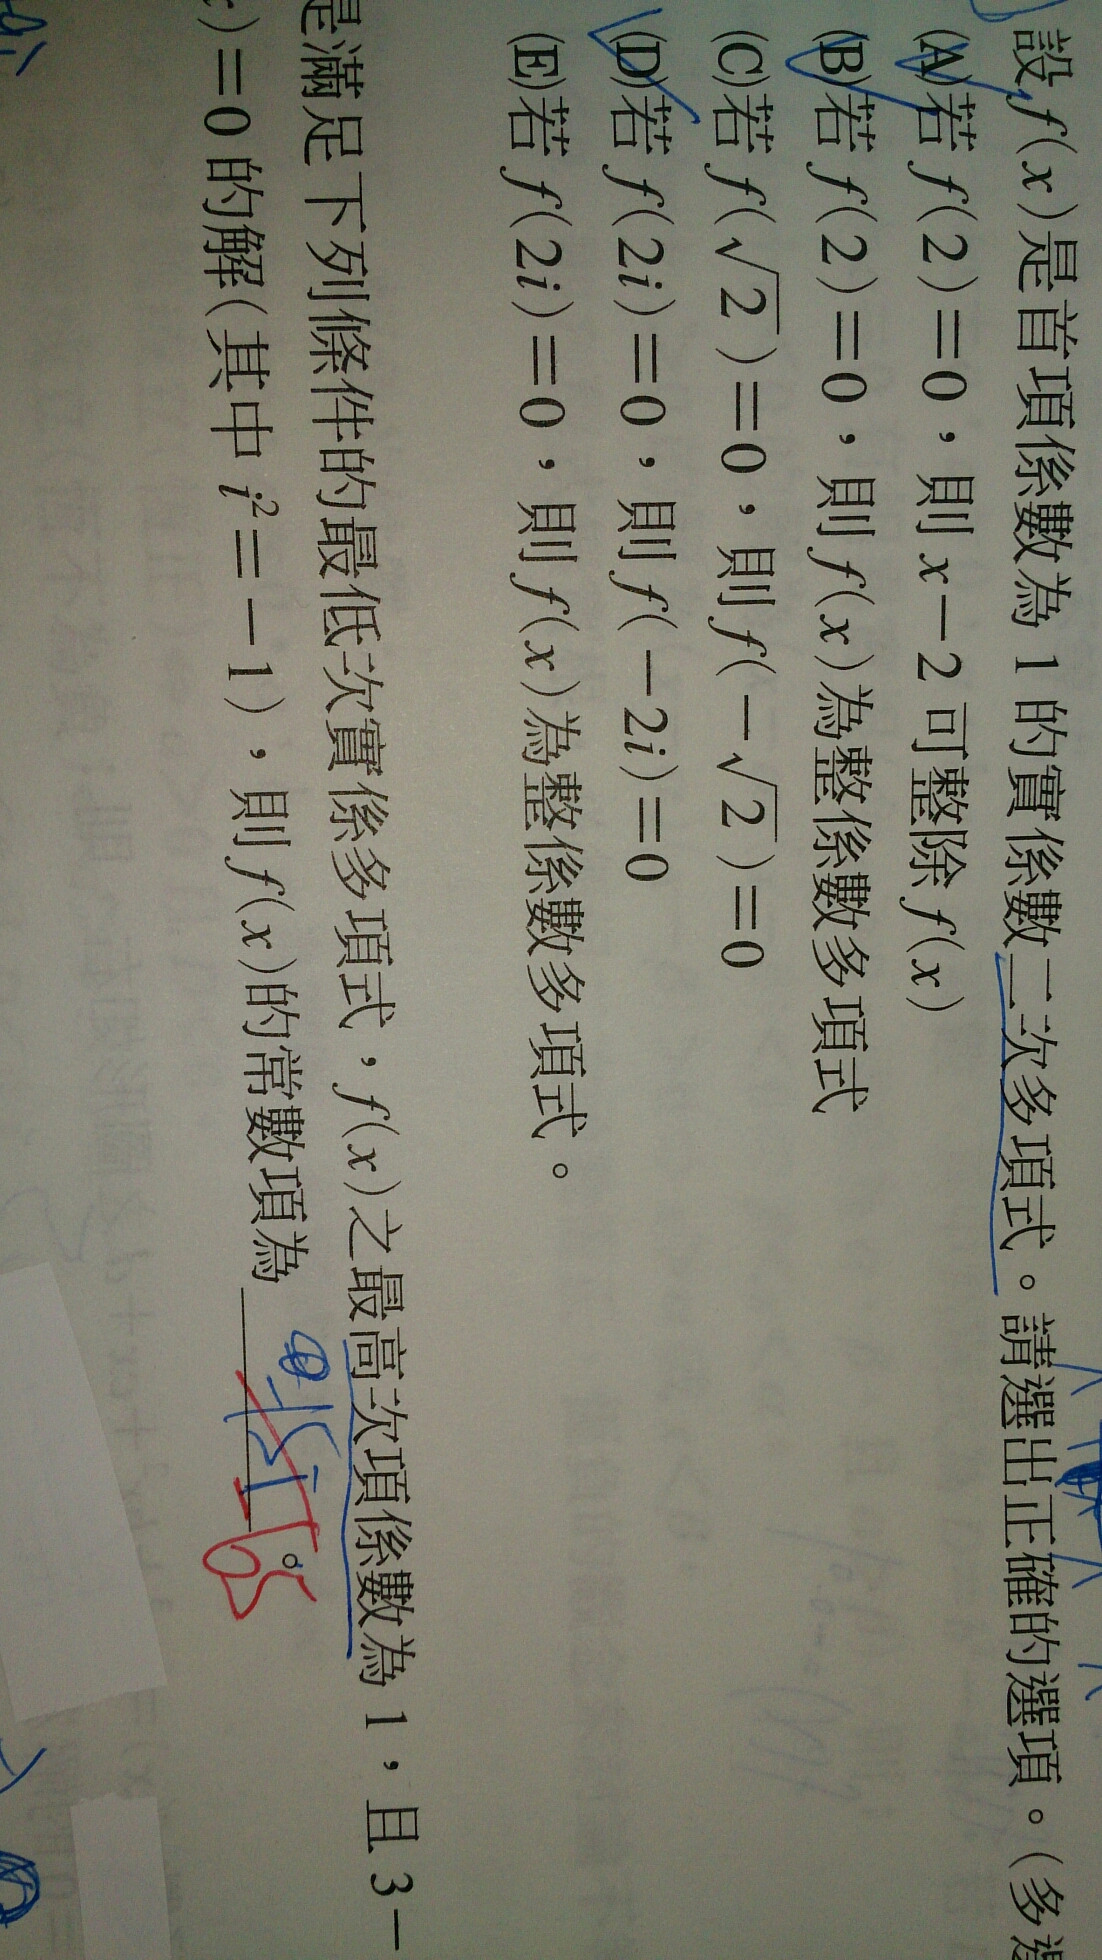 設 f(x)是首項係數為 1 的實係數二次多項式。請選出正確的選項。(多選
(A)若 f(2)=0,則 x-2 可整除 f(x)
(B)若 f(2)=0,則 f(x)為整係數多項式
(C)若 f(√2)=0,則 f(-√2)=0
(D)若 f(2i)=0,則 f(-2i)=0
(E)若 f(2i)=0,則 f(x)為整係數多項式。
是滿足下列條件的最低次實係多項式,f(x)之最高次項係數為 1,且 3-
)=0 的解(其中 i²=-1),則 f(x)的常數項為